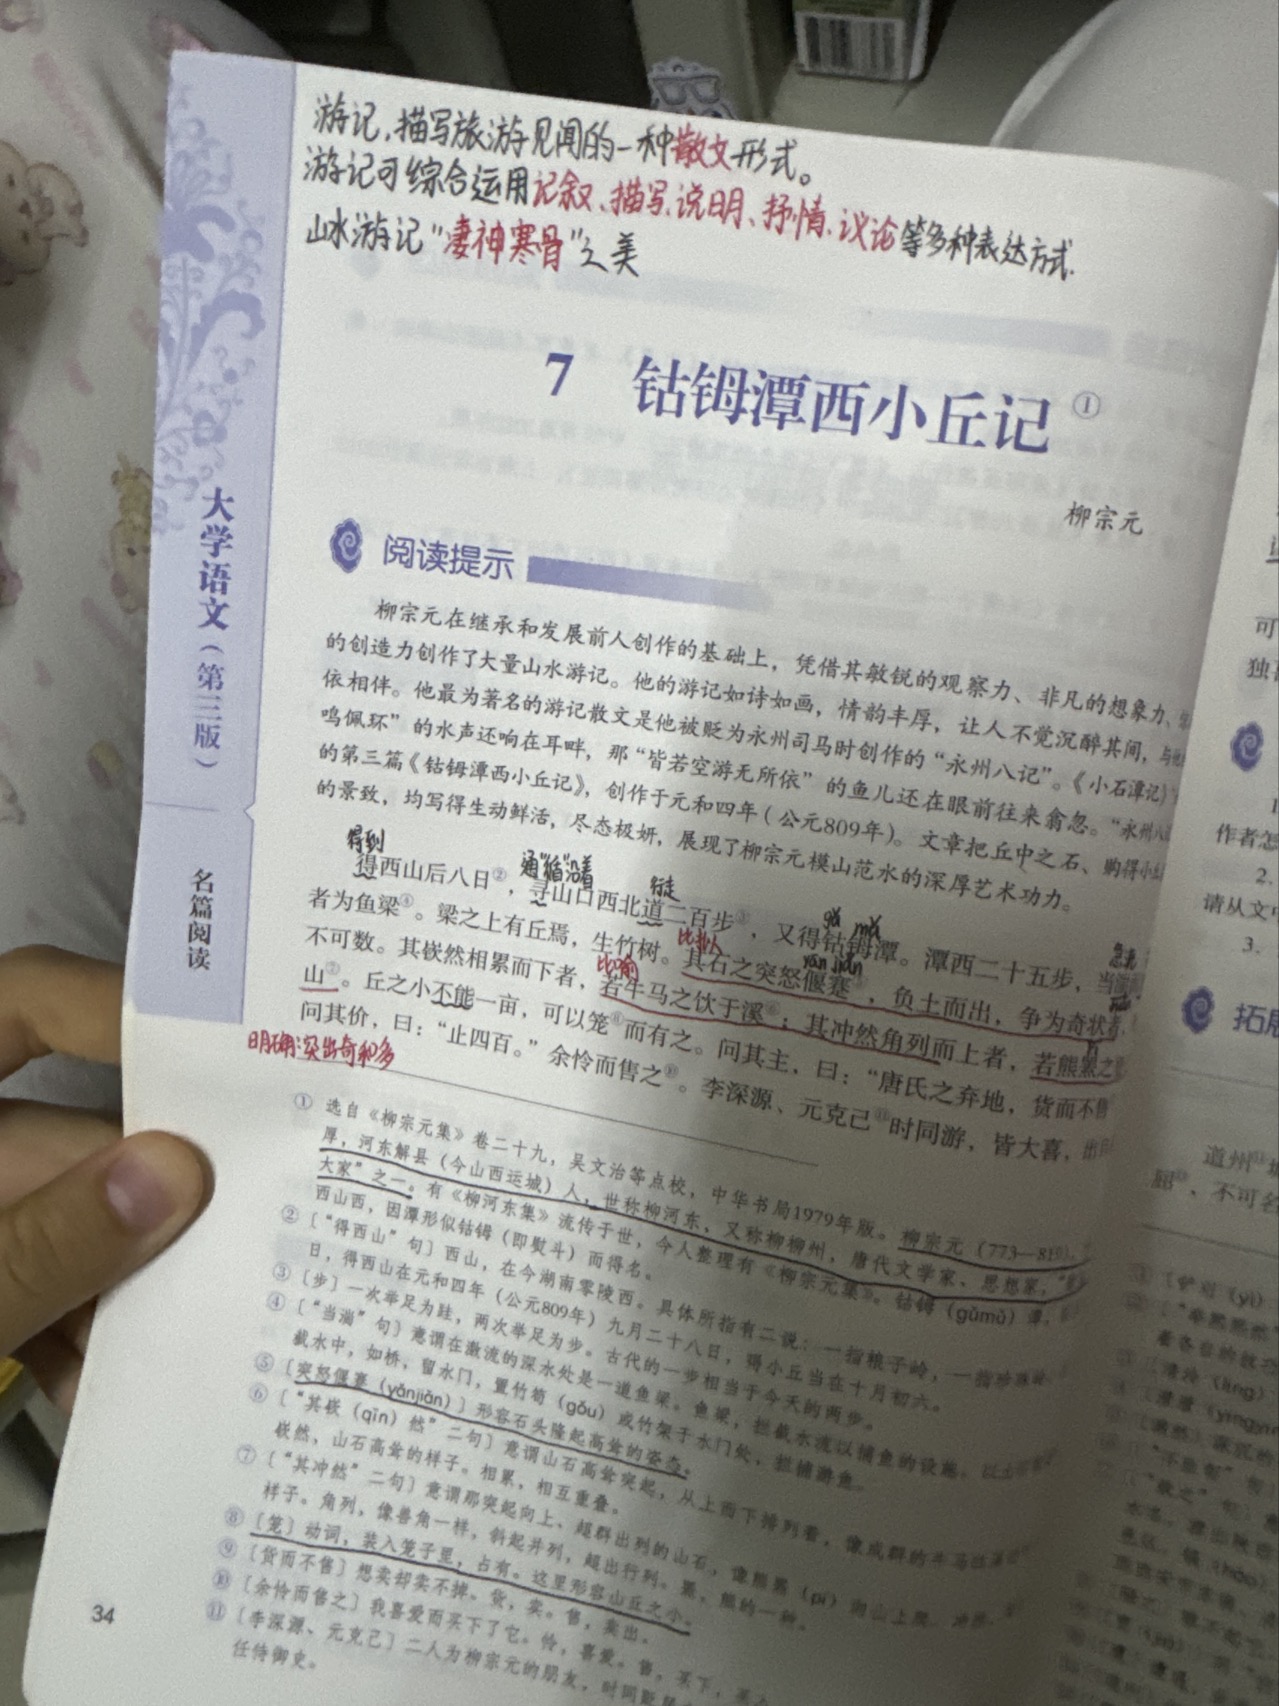 游记,描写旅游见闻的一种散文形式。
游记可综合运用记叙、描写、说明、抒情、议论等多种表达方式.
山水游记"凄神寒骨"之美
7 钴鉧潭西小丘记①
柳宗元
大学语文(第三版)
名篇阅读
阅读提示
柳宗元在继承和发展前人创作的基础上,凭借其敏锐的观察力、非凡的想象力、
的创造力创作了大量山水游记。他的游记如诗如画,情韵丰厚,让人不觉沉醉其间,与他
依相伴。他最为著名的游记散文是他被贬为永州司马时创作的“永州八记”。《小石潭记》
鸣佩环”的水声还响在耳畔,那“皆若空游无所依”的鱼儿还在眼前往来翕忽。“永州八记
的第三篇《钴鉧潭西小丘记》,创作于元和四年(公元809年)。文章把丘中之石、购得小丘
的景致,均写得生动鲜活,尽态极妍,展现了柳宗元模山范水的深厚艺术功力。
得到 通"循"沿着 行走
得西山后八日②,寻山口西北道二百步③,又得钴鉧潭。潭西二十五步,当湍
gǔ mǔ
者为鱼梁④。梁之上有丘焉,生竹树。其石之突怒偃蹇⑤,负土而出,争为奇状者,
比拟人 yǎn jiǎn
不可数。其嵚然相累而下者,若牛马之饮于溪⑥;其冲然角列而上者,若熊罴之
比喻
山⑦。丘之小不能一亩,可以笼⑧而有之。问其主,曰:“唐氏之弃地,货而不售
问其价,曰:“止四百。”余怜而售之⑩。李深源、元克己⑪时同游,皆大喜,出自
明确:突出奇和多
① 选自《柳宗元集》卷二十九,吴文治等点校,中华书局1979年版。柳宗元(773—819),
厚,河东解县(今山西运城)人,世称柳河东、又称柳柳州,唐代文学家、思想家,“
大家”之一。有《柳河东集》流传于世,今人整理有《柳宗元集》。钴鉧(gǔmǔ)潭,
西山西,因潭形似钴鉧(即熨斗)而得名。
② 〔“得西山”句〕西山,在今湖南零陵西。具体所指有二说:一指粮子岭,一指
日,得西山在元和四年(公元809年)九月二十八日,得小丘当在十月初六。
③ 〔步〕一次举足为跬,两次举足为步。古代的一步相当于今天的两步。
④ 〔“当湍”句〕意谓在激流的深水处是一道鱼梁。鱼梁,拦截水流以捕鱼的设施。以土
截水中,如桥,留水门,置竹笱(gǒu)或竹架于水门处,拦捕游鱼。
⑤ 〔突怒偃蹇(yǎnjiǎn)〕形容石头隆起高耸的姿态。
⑥ 〔“其嵚(qīn)然”二句〕意谓山石高耸突起,从上而下排列着,像成群的牛马
嵚然,山石高耸的样子。相累,相互重叠。
⑦ 〔“其冲然”二句〕意谓那突起向上、超群出列的山石,像熊罴(pí)向山上爬。冲然,
样子。角列,像兽角一样,斜起并列,超出行列。罴,熊的一种。
⑧ 〔笼〕动词,装入笼子里,占有。这里形容山丘之小。
⑨ 〔货而不售〕想卖却卖不掉。货,卖。售,卖出。
⑩ 〔余怜而售之〕我喜爱而买下了它。怜,喜爱。售,买下,
⑪ 〔李深源、元克己〕二人为柳宗元的朋友,时同贬
任侍御史。
34
作者怎
请从文中
拓展
道州
不可名